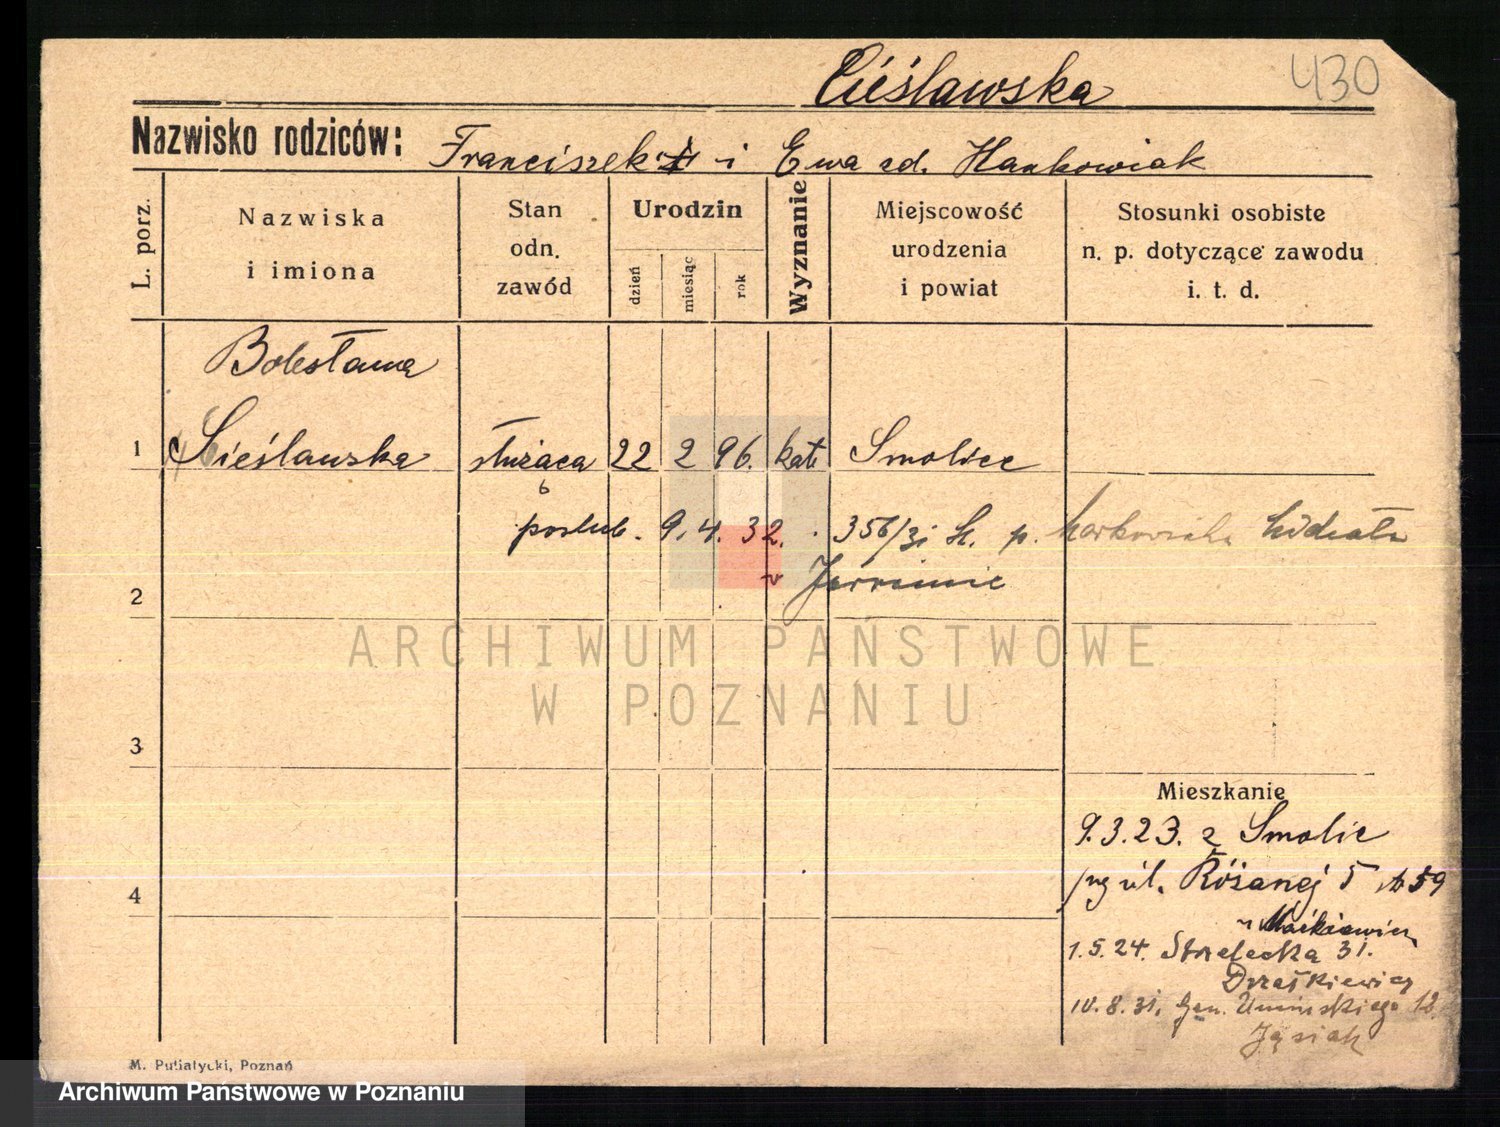 Cieślawska
430
Nazwisko rodziców: Franciszek i Ewa zd. Hankowiak
L. porz.
Nazwiska
i imiona
Stan
odn.
zawód
Urodzin
dzień
miesiąc
rok
Wyznanie
Miejscowość
urodzenia
i powiat
Stosunki osobiste
n. p. dotyczące zawodu
i. t. d.
Bolesława
1 Cieślawska służąca 22 2 96. kat Smolice
poślub. 9. 4. 32. 356/31 p.
2
3
4
ARCHIWUM PAŃSTWOWE
W POZNANIU
Mieszkanie
9.3.23. z Smolic
ul. Różanej 5 59
1.5.24. Strzelecka 31.
10.8.31. Gen. Umińskiego 12.
Jąsiak
M. Putiatycki, Poznań
Archiwum Państwowe w Poznaniu